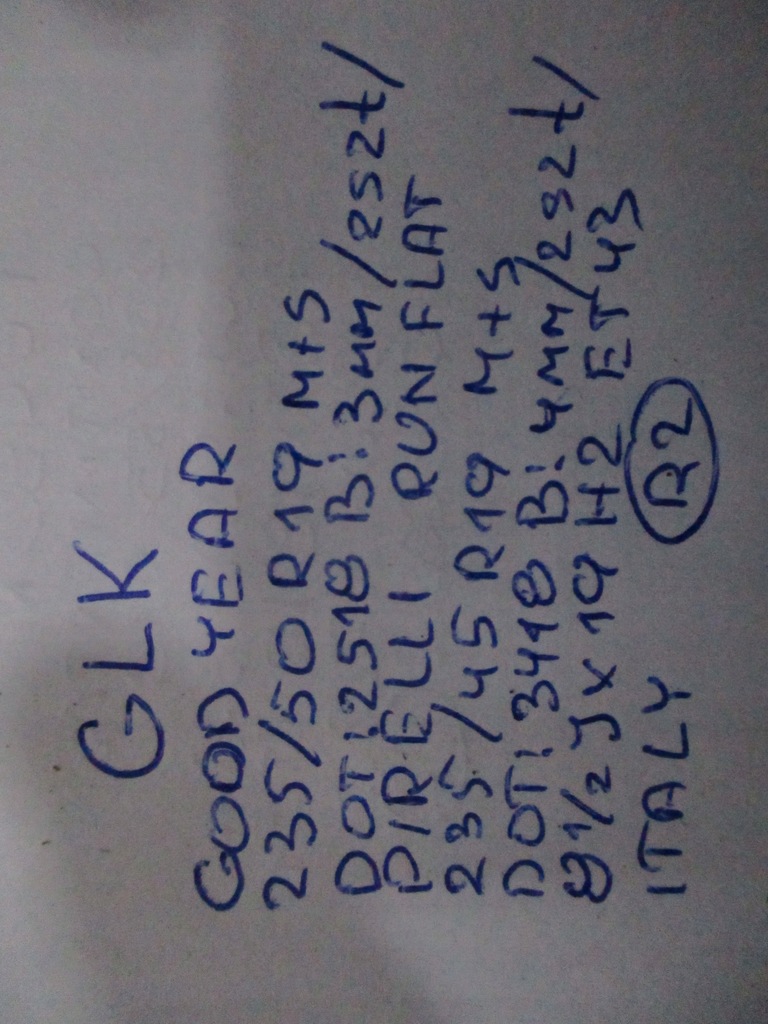 GLK
GOOD YEAR
235/50 R19 M+S
DOT:2518 B:3MM/252t/
PIRELLI RUN FLAT
235/45 R19 M+S
DOT:3418 B:4MM/292t/
8 1/2 J x 19 H2 ET 43
ITALY R2